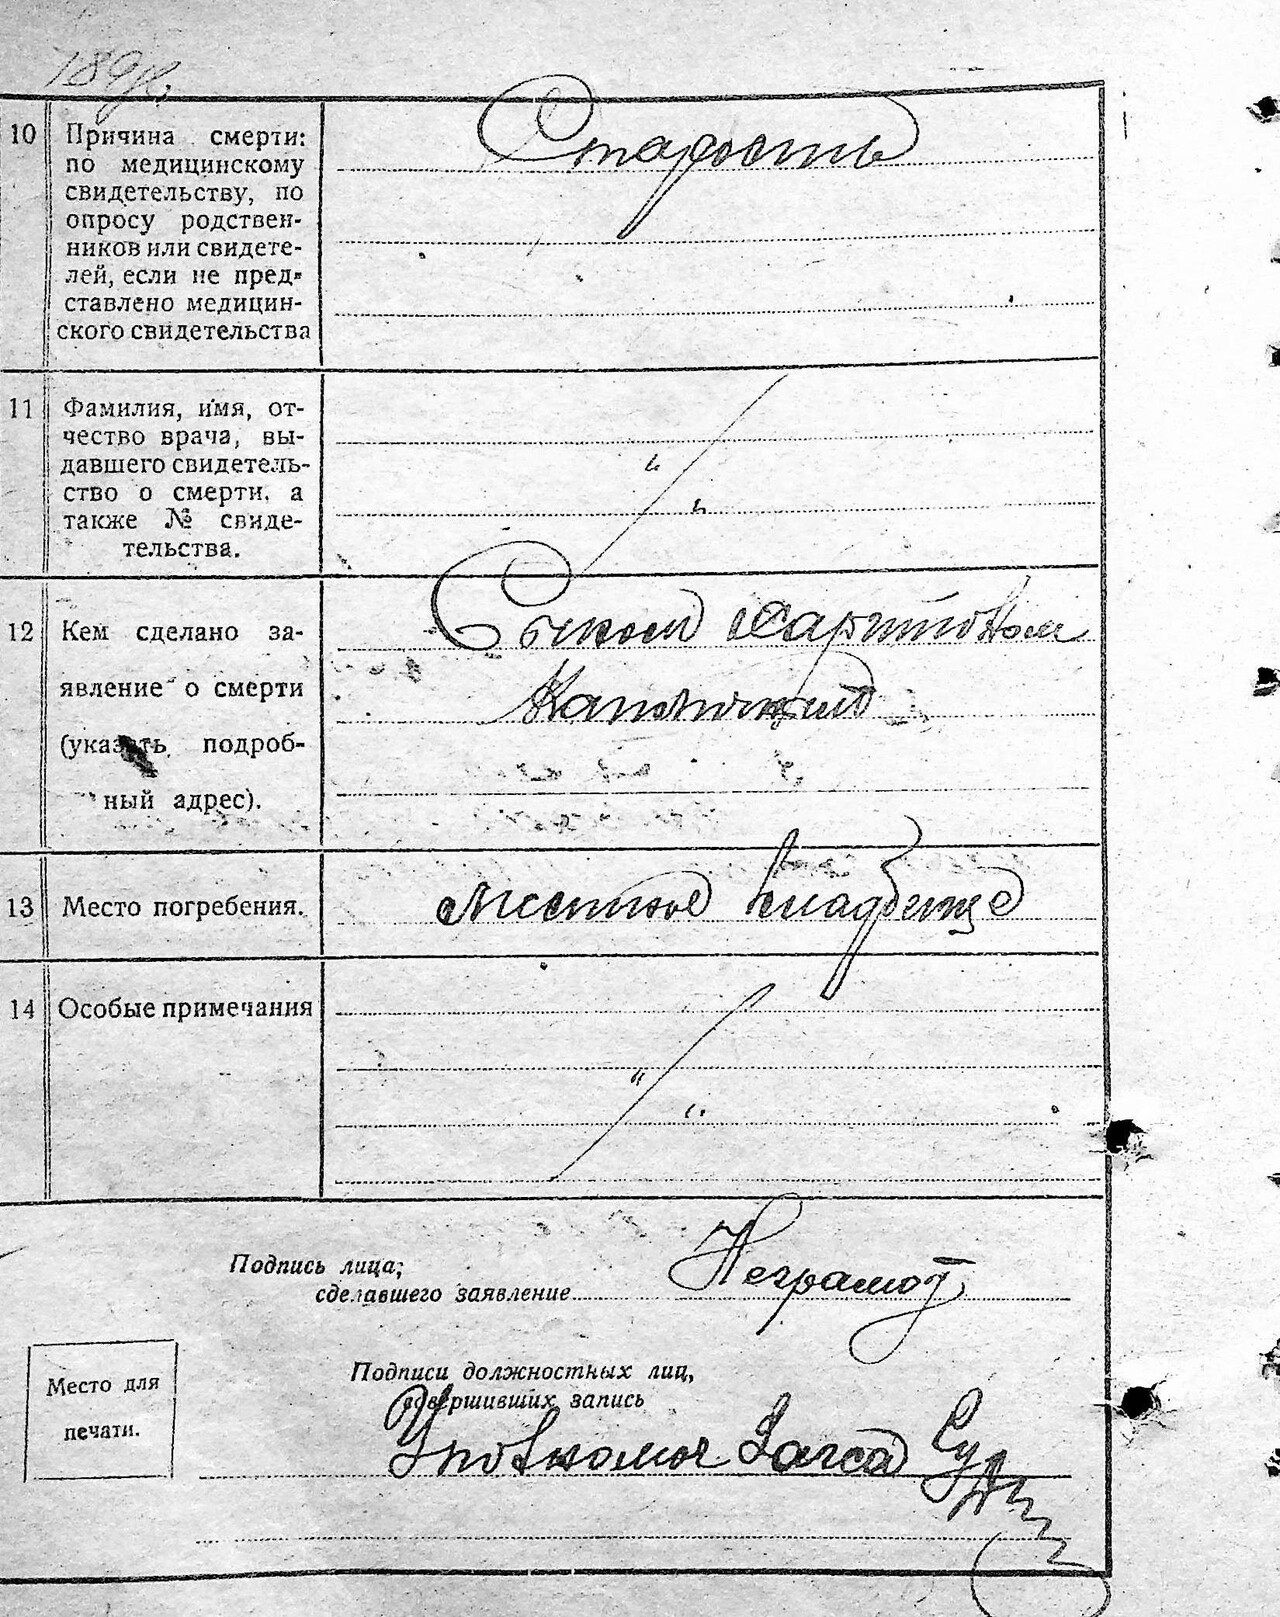 10 Причина смерти:
по медицинскому
свидетельству, по
опросу родствен-
ников или свидете-
лей, если не пред-
ставлено медицин-
ского свидетельства
Старость
11 Фамилия, имя, от-
чество врача, вы-
давшего свидетель-
ство о смерти, а
также № свиде-
тельства.
12 Кем сделано за-
явление о смерти
(указать подроб-
ный адрес).
Сыном
13 Место погребения.
местное кладбище
14 Особые примечания
Подпись лица;
сделавшего заявление
Неграмот
Подписи должностных лиц,
совершивших запись
Загса
Место для
печати.